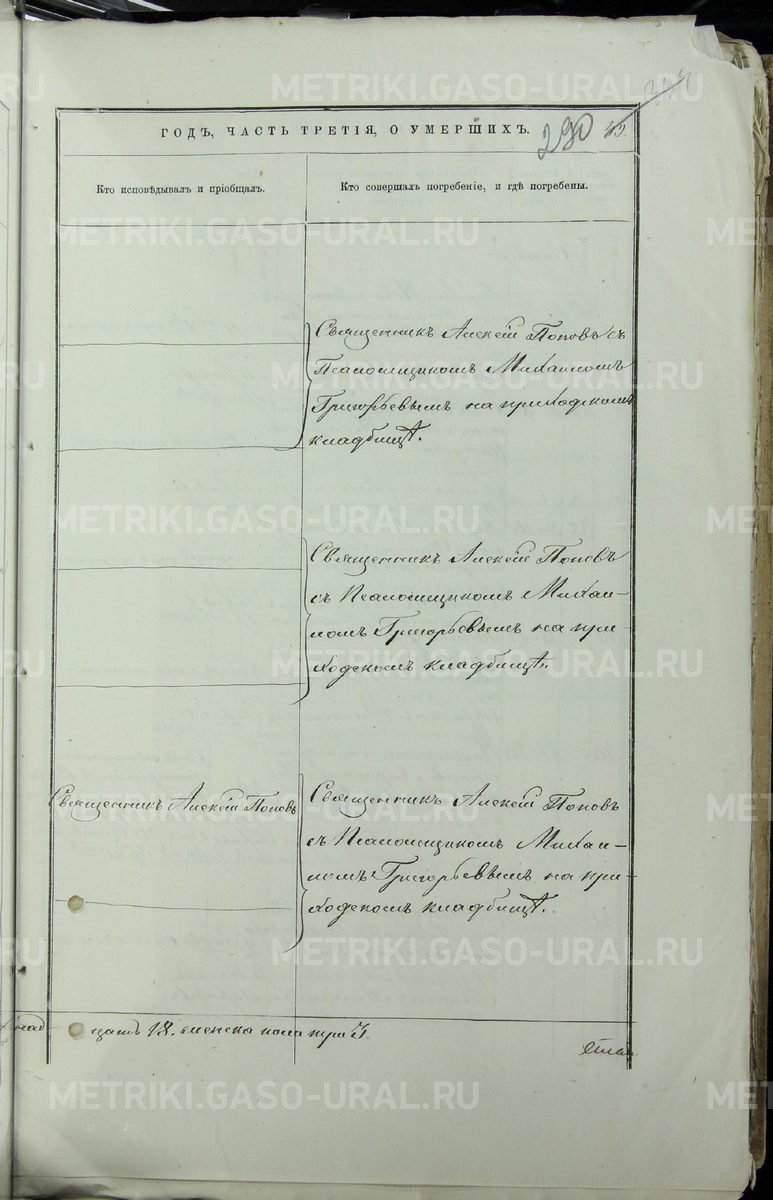 ГОДЪ, ЧАСТЬ ТРЕТІЯ, О УМЕРШИХЪ.
290
Кто исповѣдывалъ и пріобщалъ.
Кто совершалъ погребеніе, и гдѣ погребены.
Священникъ Алексій Поповъ съ
Псаломщикомъ Михаиломъ
Григорьевымъ на приходскомъ
кладбищѣ.
Священникъ Алексій Поповъ
съ Псаломщикомъ Михаи-
ломъ Григорьевымъ на при-
ходскомъ кладбищѣ.
Священникъ Алексій Поповъ
Священникъ Алексій Поповъ
съ Псаломщикомъ Михаи-
ломъ Григорьевымъ на при-
ходскомъ кладбищѣ.
METRIKI.GASO-URAL.RU